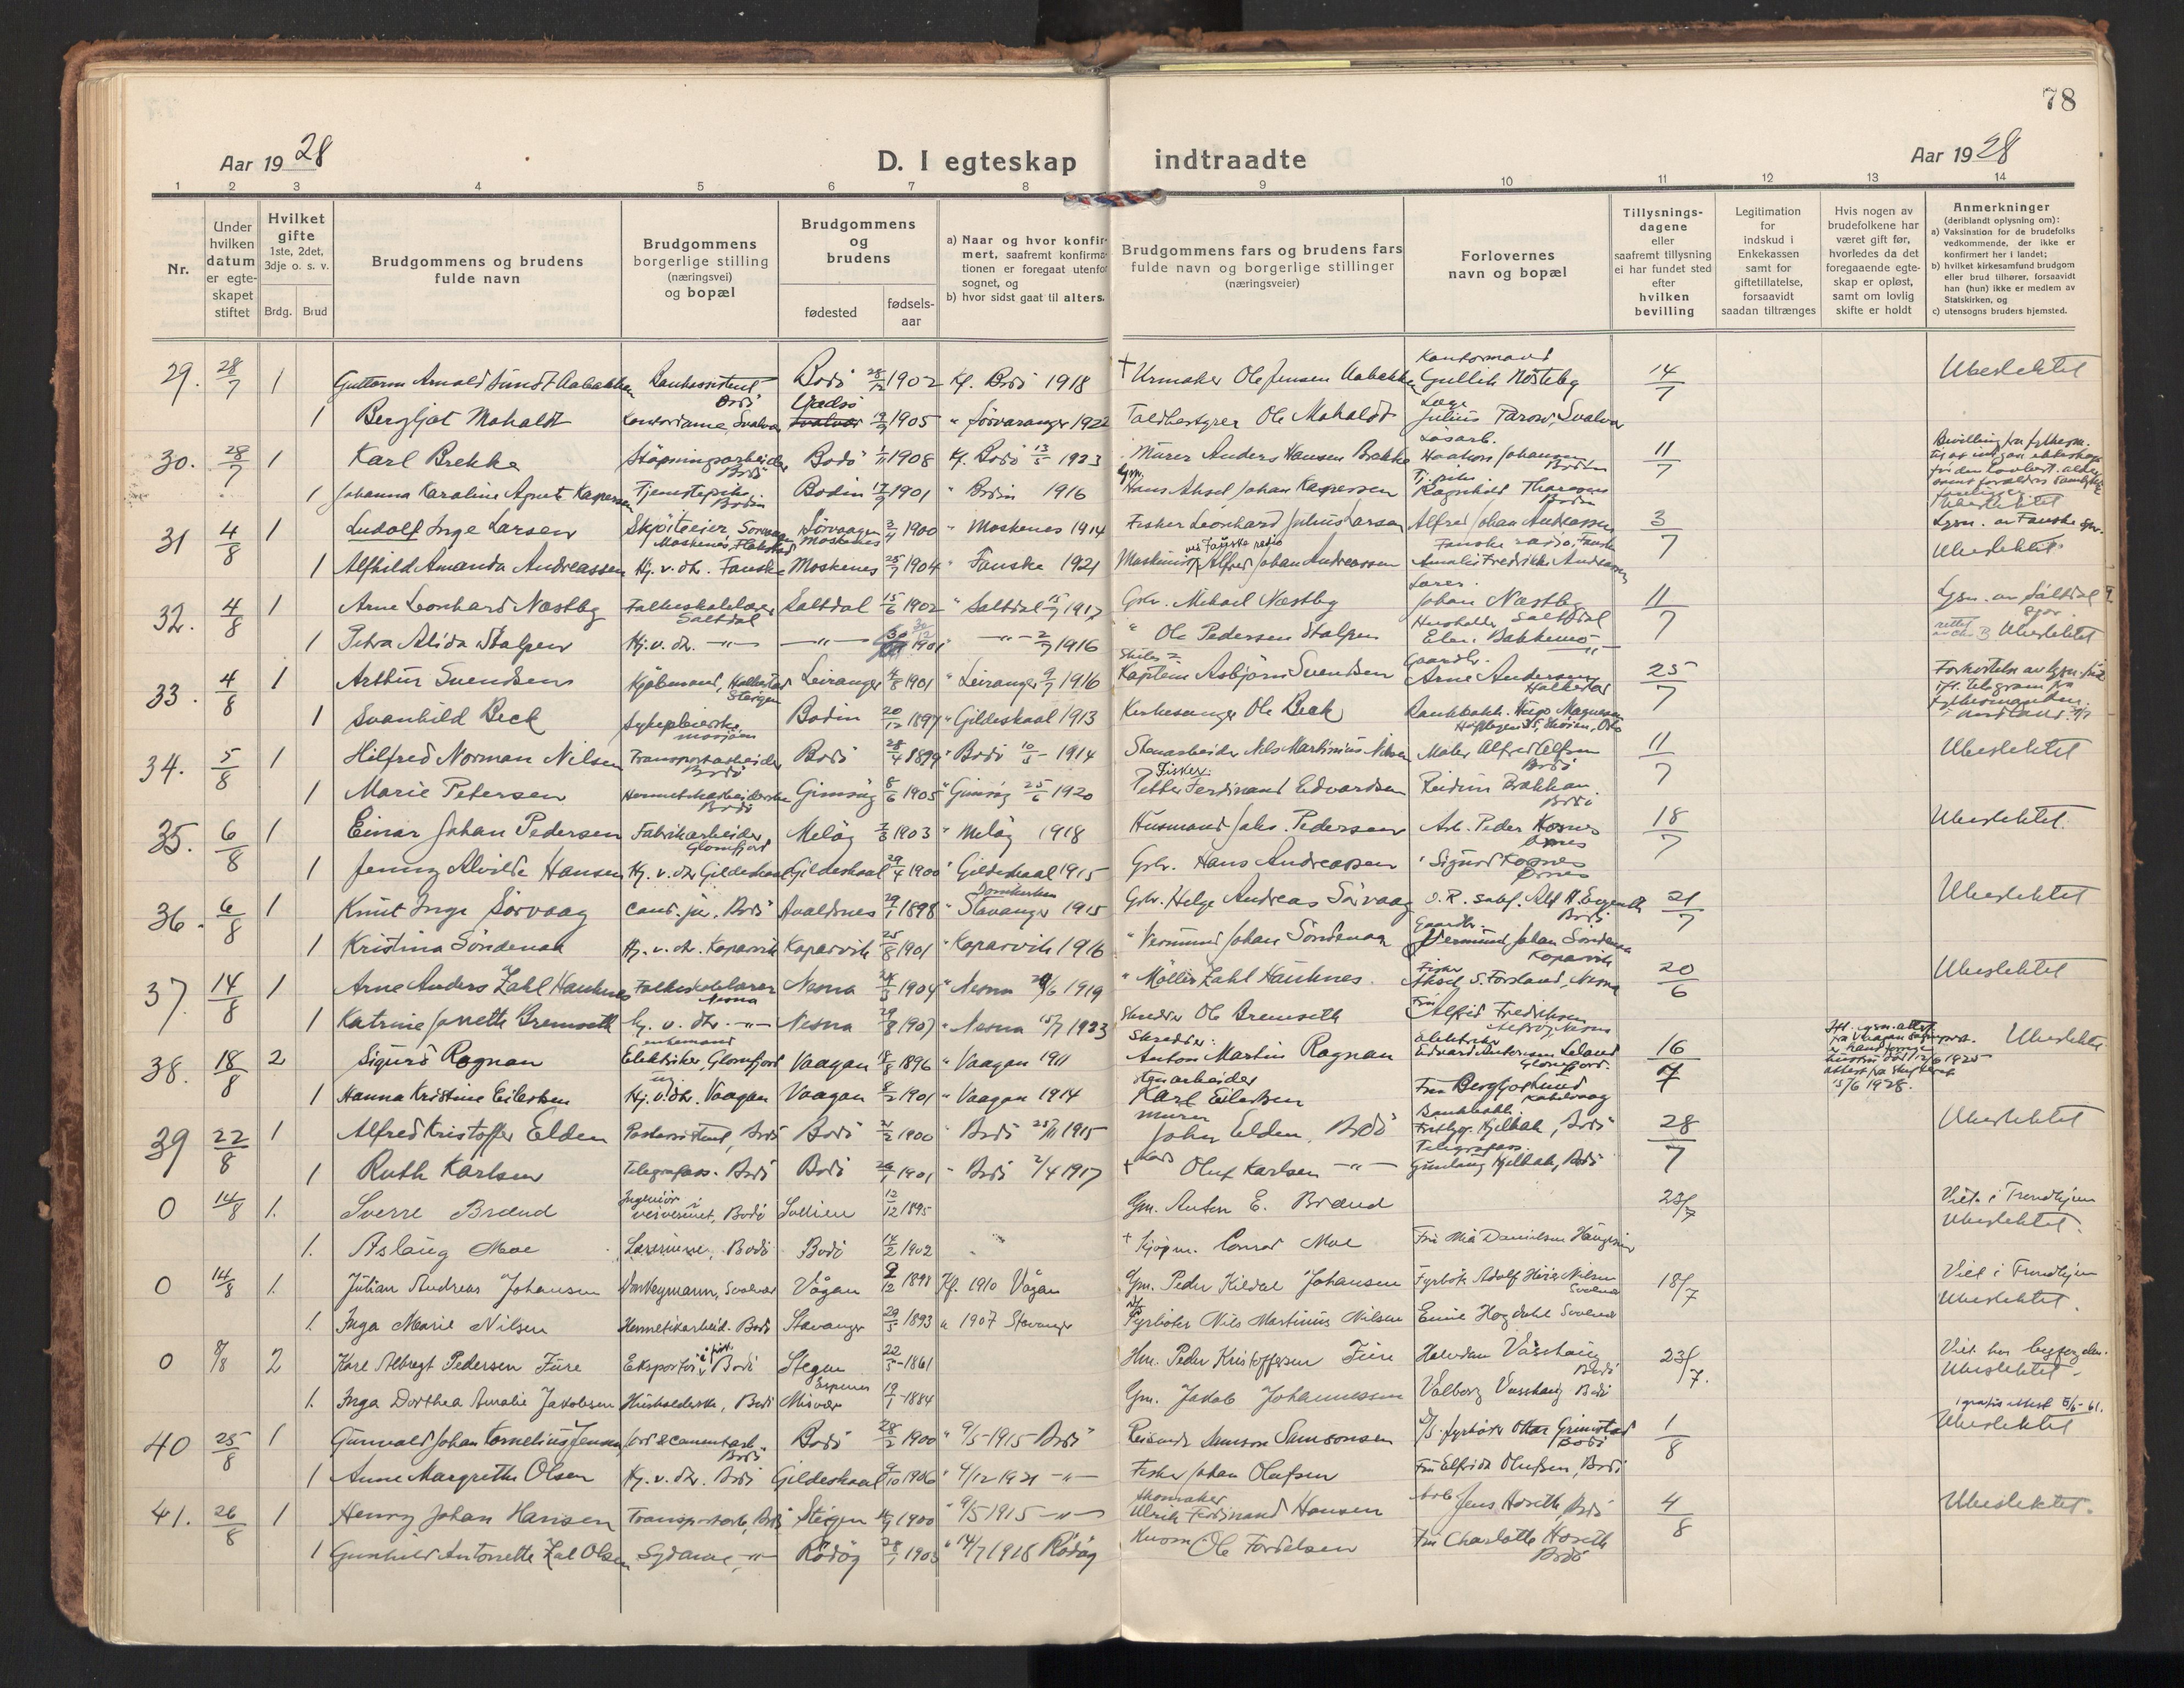 78
Aar 1928
D. I egteskap indtraadte
Aar 1928
1 2 3 4 5 6 7 8 9 10 11 12 13 14
Nr.
Under hvilken datum er egteskapet stiftet
Hvilket gifte 1ste, 2det, 3dje o. s. v.
Brdg. Brud
Brudgommens og brudens fulde navn
Brudgommens borgerlige stilling (næringsvei) og bopæl
Brudgommens og brudens
fødested
fødsels-aar
a) Naar og hvor konfirmert, saafremt konfirmationen er foregaat utenfor sognet, og
b) hvor sidst gaat til alters.
Brudgommens fars og brudens fars fulde navn og borgerlige stillinger (næringsveier)
Forlovernes navn og bopæl
Tillysningsdagene eller saafremt tillysning ei har fundet sted efter hvilken bevilling
Legitimation for indskud i Enkekassen samt for giftetillatelse, forsaavidt saadan tiltrænges
Hvis nogen av brudefolkene har været gift før, hvorledes da det foregaaende egteskap er opløst, samt om lovlig skifte er holdt
Anmerkninger (deriblandt oplysning om):
a) Vaksination for de brudefolks vedkommende, der ikke er konfirmert her i landet;
b) hvilket kirkesamfund brudgom eller brud tilhører, forsaavidt han (hun) ikke er medlem av Statskirken, og
c) utensogns bruders hjemsted.
29. 28/7 1 Guttorm Arnold Sundt Aabakken Bankassistent Bodö Bodö 28/12 1902 Kf. Bodö 1918 † Urmaker Ole Jensen Aabakken Kontormand Gullik Nösteby 14/7 Ubeslektet
1 Bergljot Mohaldt Kontordame, Svolvær Vadsö 1905 " Sörvaranger 1922 Toldbestyrer Ole Mohaldt Læge Julius Parow, Svolvær
30. 28/7 1 Karl Brekke Stöpningsarbeider Bodö Bodö 1/11 1908 Kf. Bodö 13/5 1923 Murer Anders Hansen Brekke Lösarb. Haakon Johansen Bodin 11/7
1 Johanna Karoline Agnet Kaspersen Tjenestepike Bodin Bodin 17/9 1901 " Bodin 1916 Gbr. Hans Aksel Johan Kaspersen Ragnhild Bodin Ubeslektet
31 4/8 1 Ludolf Inge Larsen Sköiteeier, Sörvaagen Moskenes Sörvaagen Moskenes 3/4 1900 " Moskenes 1914 Fisker Leonhard Julius Larsen Alfred Johan Andreassen Fauske radio, Fauske 3/7 Lysn. av Fauske spr.
1 Alfhild Amanda Andreassen Hj. v. dr. Fauske Moskenes 25/7 1904 " Fauske 1921 Maskinist ved Fauske radio Alfred Johan Andreassen Amalie Fredrikke Andreassen Ubeslektet
32. 4/8 1 Arne Leonhard Næstby Folkeskolelærer Saltdal Saltdal 15/6 1902 " Saltdal 15/7 1917 Gbr. Mikael Næstby Lærer Johan Næstby Saltdal 11/7 Lysn. av Saltdal spr.
1 Petra Alida Stolpen Hj. v. dr. -"- -"- 1901 -"- 2/7 1916 " Ole Pedersen Stolpen Elen Bakkemo -"- Ubeslektet
33. 4/8 1 Arthur Svendsen Kjöbmand, Holkestad Steigen Leiranger 4/8 1901 " Leiranger 9/7 1916 Kaptein Asbjörn Svendsen Gaardbr. Arne Andersen Holkestad 25/7
1 Svanhild Beck Sykepleierske Mosjöen Bodin 20/12 1897 " Gildeskaal 1913 Kirkesanger Ole Beck Bankbokh. Hugo Magnussen
34. 5/8 1 Hilfred Norman Nilsen Transportarbeider Bodö Bodö 28/4 1899 " Bodö 10/5 1914 Stenarbeider Nils Martinius Nilsen Maler Alfred Olsen Bodö 11/7 Ubeslektet
1 Marie Petersen Hermetikarbeiderske Bodö Gimsöy 8/6 1905 " Gimsöy 25/6 1920 Fisker Petter Ferdinand Edvardsen Reidun Bakkan Bodö
35. 6/8 1 Einar Johan Pedersen Fabrikarbeider, Glomfjord Melöy 7/3 1903 " Melöy 1918 Husmand Johs. Pedersen Arb. Peder Kosnes Örnes 18/7 Ubeslektet
1 Jenny Alvilde Hansen Hj. v. dr. Gildeskaal Gildeskaal 29/4 1900 " Gildeskaal 1915 Gbr. Hans Andreassen " Sigurd Kosnes Örnes
36. 6/8 1 Knut Inge Sörvaag Cand. jur. Bodö Avaldsnes 29/1 1898 " Domkirken Stavanger 1915 Gbr. Helge Andreas Sörvaag O.R. sakf. Alf Bodö 21/7 Ubeslektet
1 Kristina Söndenaa Hj. v. dr. Kopervik Kopervik 25/8 1901 " Kopervik 1916 " Vermund Johan Söndenaa Gaardbr. Vermund Johan Söndenaa Kopervik
37. 14/8 1 Arne Anders Zahl Hauknes Folkeskolelærer Nesna Nesna 24/3 1904 " Nesna 29/6 1919 " Möller Zahl Hauknes. Fisker Aksel S. Forsland, Nesna 20/6 Ubeslektet
1 Katrine Jonette Bremseth Hj. v. dr. -"- Nesna 29/8 1907 " Nesna 15/7 1923 Skredder Ole Bremseth Fru Alfrid Fredriksen Nesna
38. 18/8 2 Sigurd Rognan enkemand Elektriker, Glomfjord Vaagan 18/8 1896 " Vaagan 1911 Skredder: Anton Martin Rognan Elektriker Edvard Antonsen Leland Glomfjord. 16/7 Ubeslektet
1 Hanna Kristine Eilertsen ug. Hj. v. dr. Vaagan Vaagan 8/2 1901 " Vaagan 1914 Karl Eilertsen Fru Bergljot Lund Kabelvaag
39 22/8 1 Alfred Kristoffer Elden Postassistent, Bodö Bodö 21/2 1900 " Bodö 25/11 1915 Murer John Elden, Bodö Bankbokh. Fridtjof Kjelbak, Bodö 28/7 Ubeslektet
1 Ruth Karlsen Telegrafass. Bodö Bodö 26/1 1901 " Bodö 2/4 1917 † Oluf Karlsen -"- Telegrafass. Gunlaug Kjelbak, Bodö
0 14/8 1. Sverre Brænd Ingeniör i veivesenet, Bodö 12/12 1895 Gm. Anton E. Brænd 23/7 Viet i Trondhjem
1. Aslaug Moe Lærerinne, Bodö Bodö 14/2 1902 † Kjöpm. Conrad Moe Fru Mia Danielsen Haugesund Ubeslektet.
0 14/8 1. Julian Andreas Johansen Verkeymann, Svolvær Vågan 9/12 1891 Kf. 1910 Vågan Gm. Peder Kildal Johansen Fyrböt. Adolf Nilsen Svolvær 18/7 Viet i Trondhjem
1. Inga Marie Nilsen Hermetikarbeid. Bodö Stavanger 29/5 1893 " 1907 Stavanger Fyrböter Nils Martinius Nilsen Emie Hogdahl Svolvær Ubeslektet.
0 8/8 2 Karl Albregt Pedersen Fure Eksportör i fisk. Bodö Steigen 22/5-1861 Hm. Peder Kristoffersen Fure Halvdan Vasshaug Bodö 23/7. Viet hos byfogden.
1. Inga Dorthea Amalie Jakobsen Husholderske, Bodö Misvær Espenes 19/1-1884 Gm. Jakob Johannessen Valborg Vasshaug Bodö Ubeslektet
40 25/8 1 Gunvald Johan Cornelius Jensen Jord & cementarb. Bodö Bodö 28/2 1900 " 9/5 1915 Bodö Reisende Samson Samsonsen D/S. fyrböter Ottar Grimstad Bodö 1/8 gratis attest 5/6-61. Ubeslektet
1 Anne Margrethe Olsen Hj. v. dr. Bodö Gildeskaal 9/10 1906 " 4/12 1921 -"- Fisker Johan Olufsen Fru Elfrida Olufsen, Bodö
41. 26/8 1 Henry Johan Hansen Transportarb, Bodö Steigen 14/9 1900 " 9/5 1915 -"- Skomaker Ulrik Ferdinand Hansen Arb. Jens Horseth, Bodö 4/8 Ubeslektet.
1 Gunhild Antonette Zal Olsen Sydame, -"- Rödöy 28/7 1903 " 14/7 1918 Rödöy Husm. Ole Tordelsen Fru Charlotte Horseth Bodö